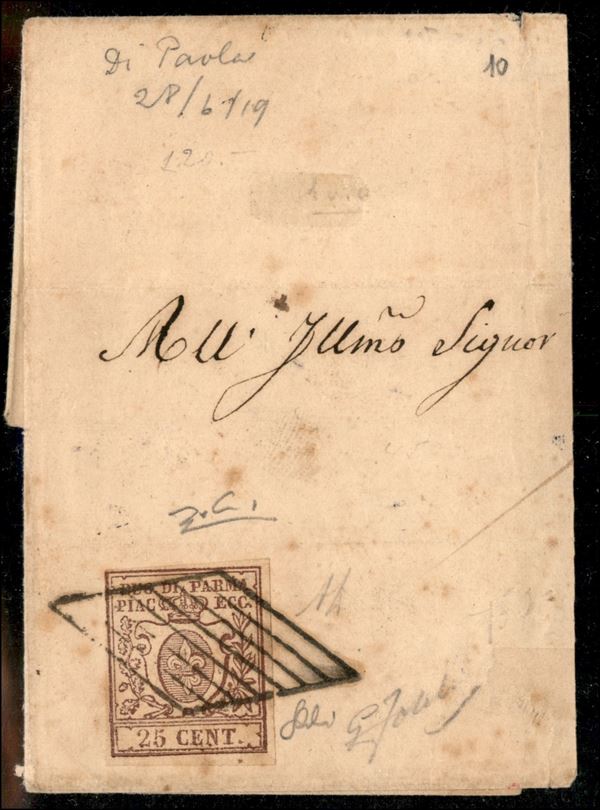 Di Paola
10
28/6/19
120.-
All' Illmo Signor
DUC. DI PARMA
PIAC. ECC.
25 CENT.